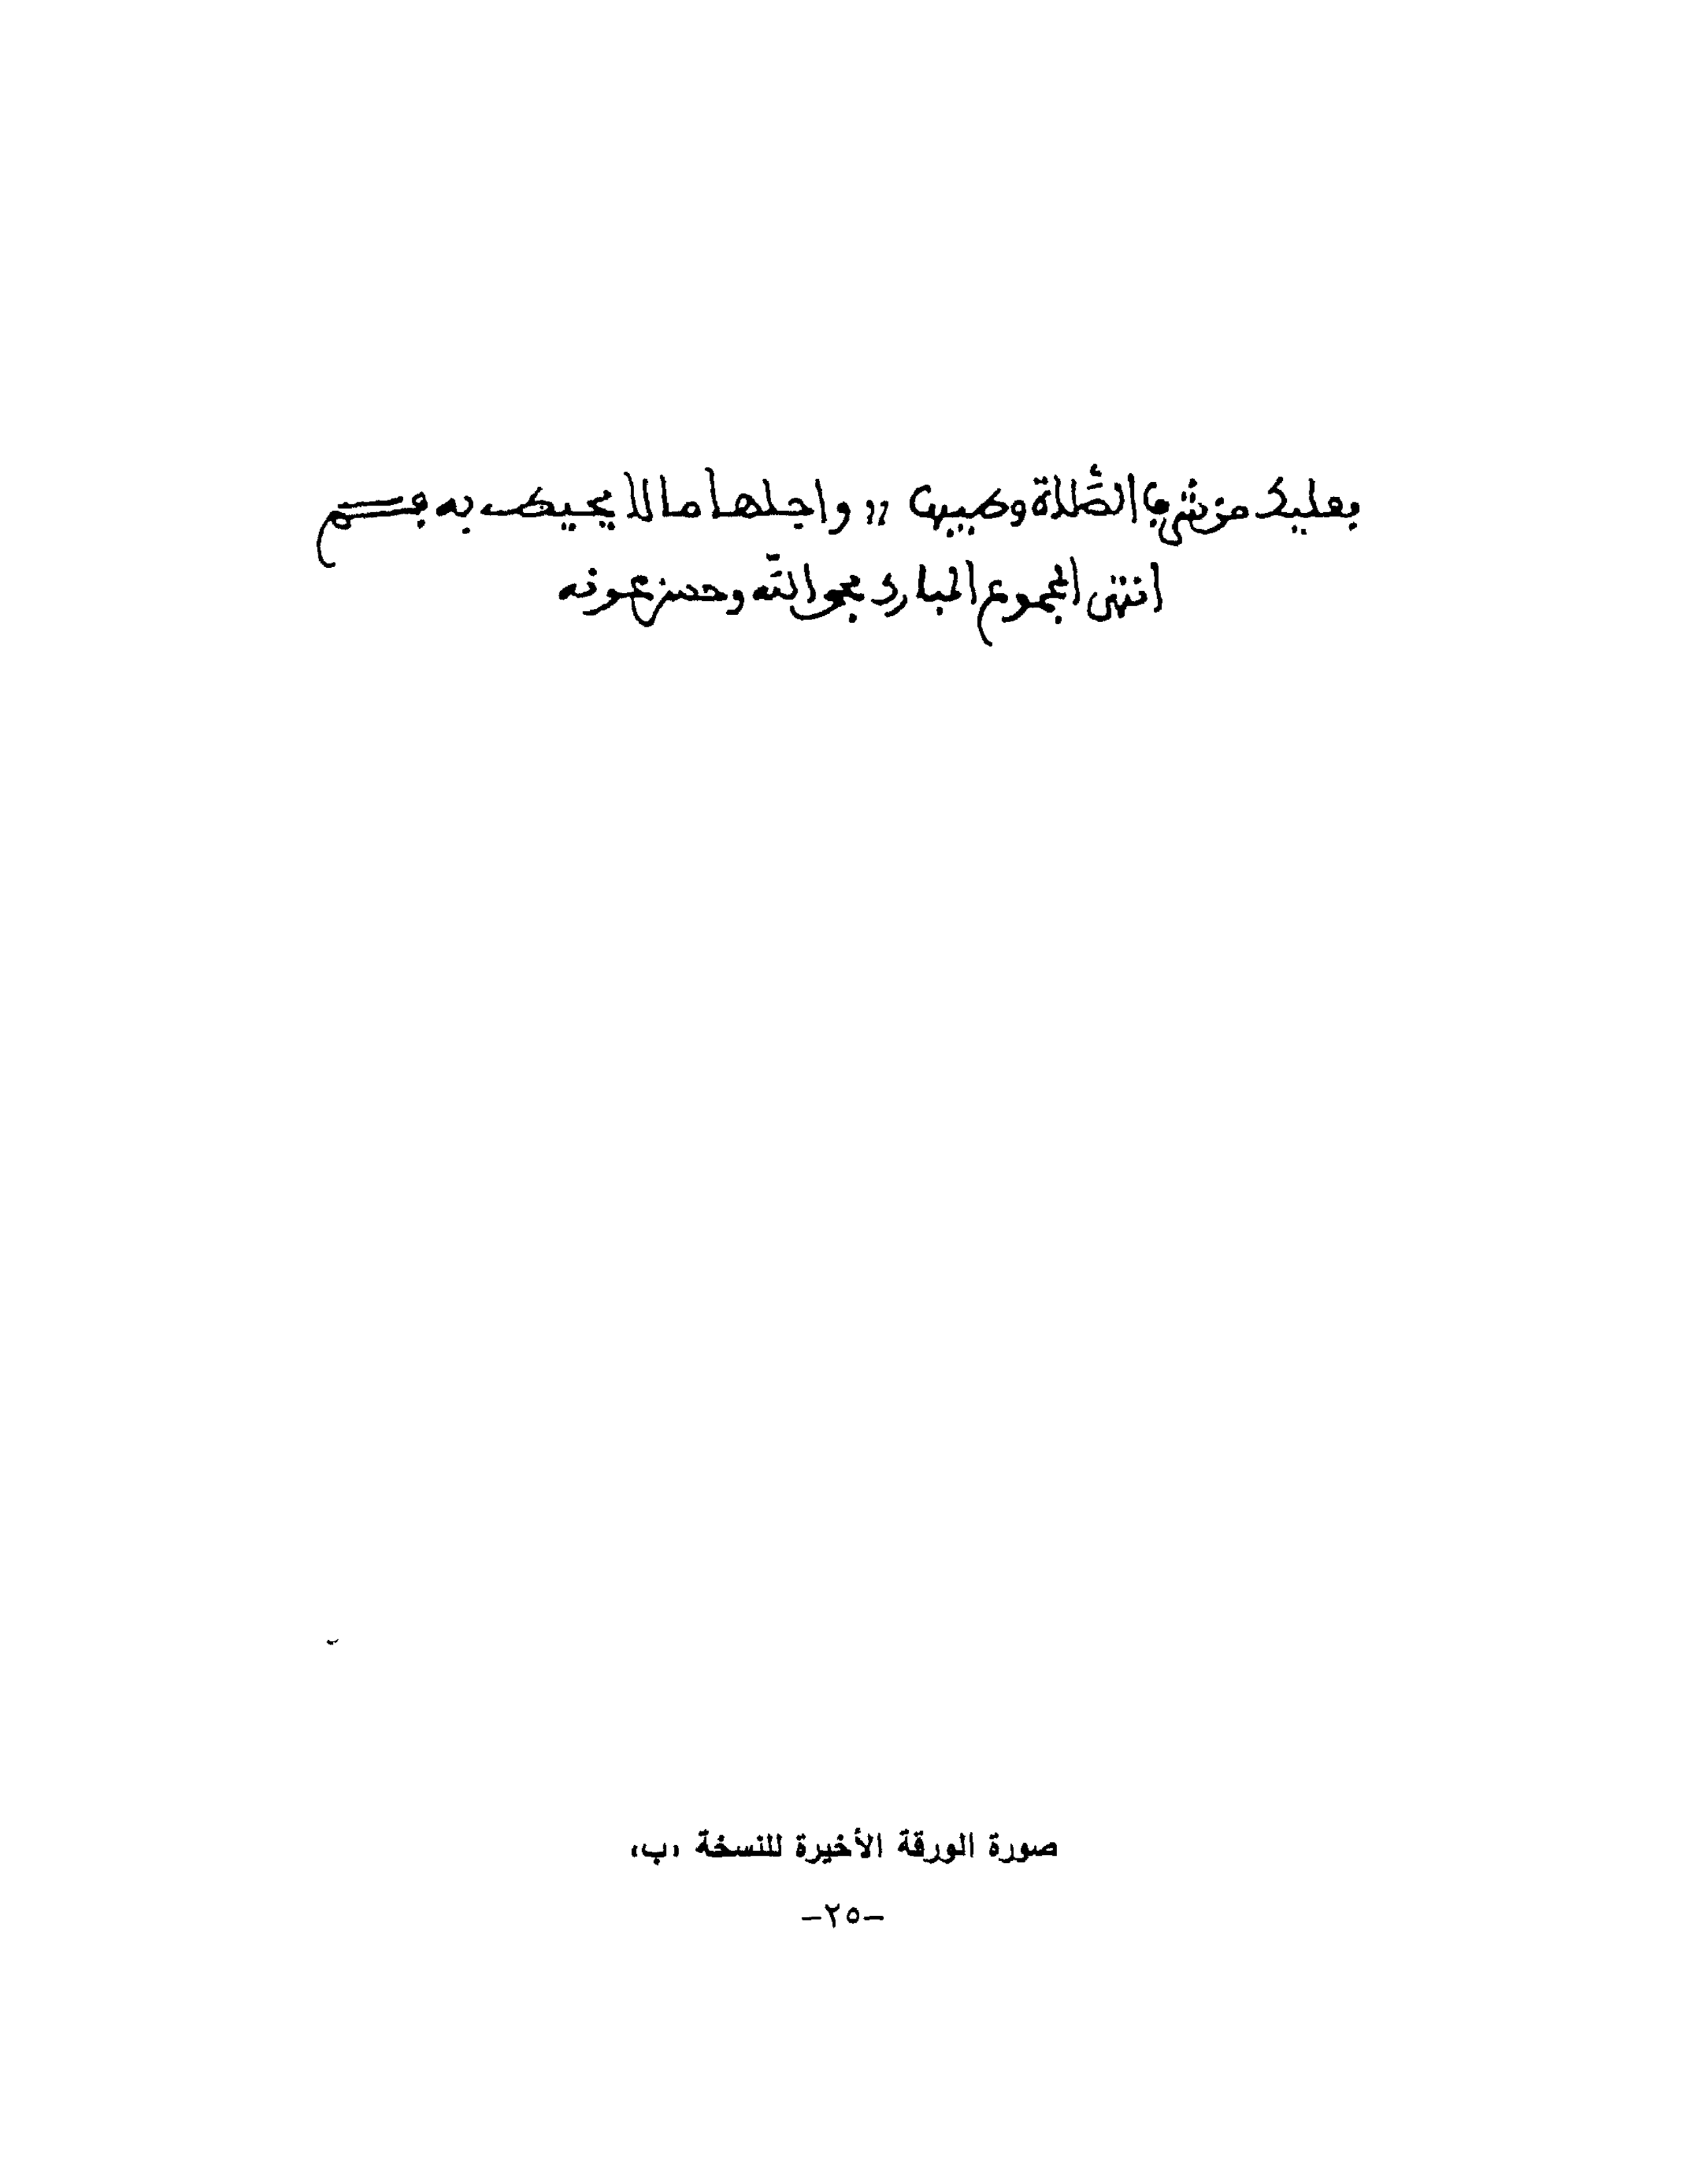 بعليك من شرف الصلاة وطيبها ,, واجلها ما لا يحيط به فم
انتهى المجموع المبارك بحول الله وحسن عونه
صورة الورقة الأخيرة للنسخة «ب»
-٢٥-